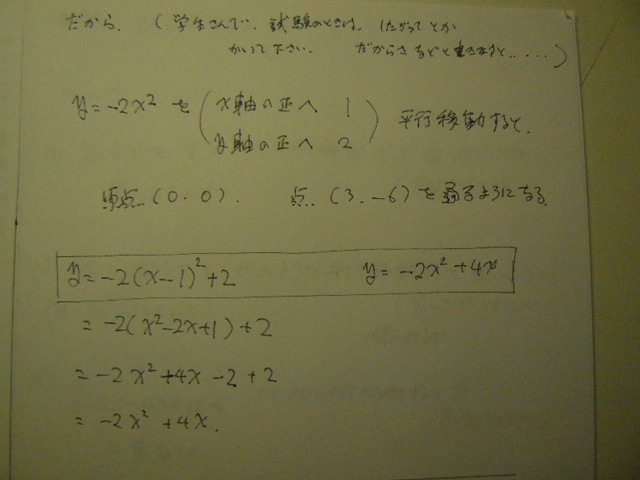 だから、(学生さんで、試験のときは、したがってとか
かいて下さい。 だからさ などと書きますと、....)
y=-2x² を (x軸の正へ 1
y軸の正へ 2) 平行移動すると、
原点 (0.0)、 点 (3.-6) を通るようになる
y=-2(x-1)²+2 y=-2x²+4x
=-2(x²-2x+1)+2
=-2x²+4x-2+2
=-2x²+4x.